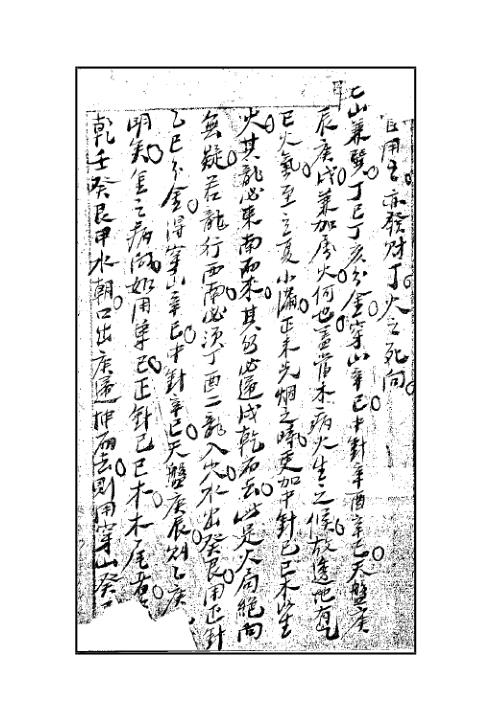 自用之亦發財丁火之死向
乙山兼巽丁巳丁亥分金穿山辛巳中針辛酉辛巳天盤庚
辰庚戌兼加秀火何也蓋常木病火生之候故逢地
巳火氣至立夏小滿正未光烟之時更加中針己巳木生
火其龍必東南而來其向必還戌乾而去此是火局絕向
無疑若龍行西南必須丁酉二龍入穴水出癸艮用正針
乙巳分金得穿山辛巳中針辛巳天盤庚辰則乙庚
明矣主之病向如用單巳正針己巳木木
乾壬癸艮甲水朝口出庚還冲而去則用穿山癸